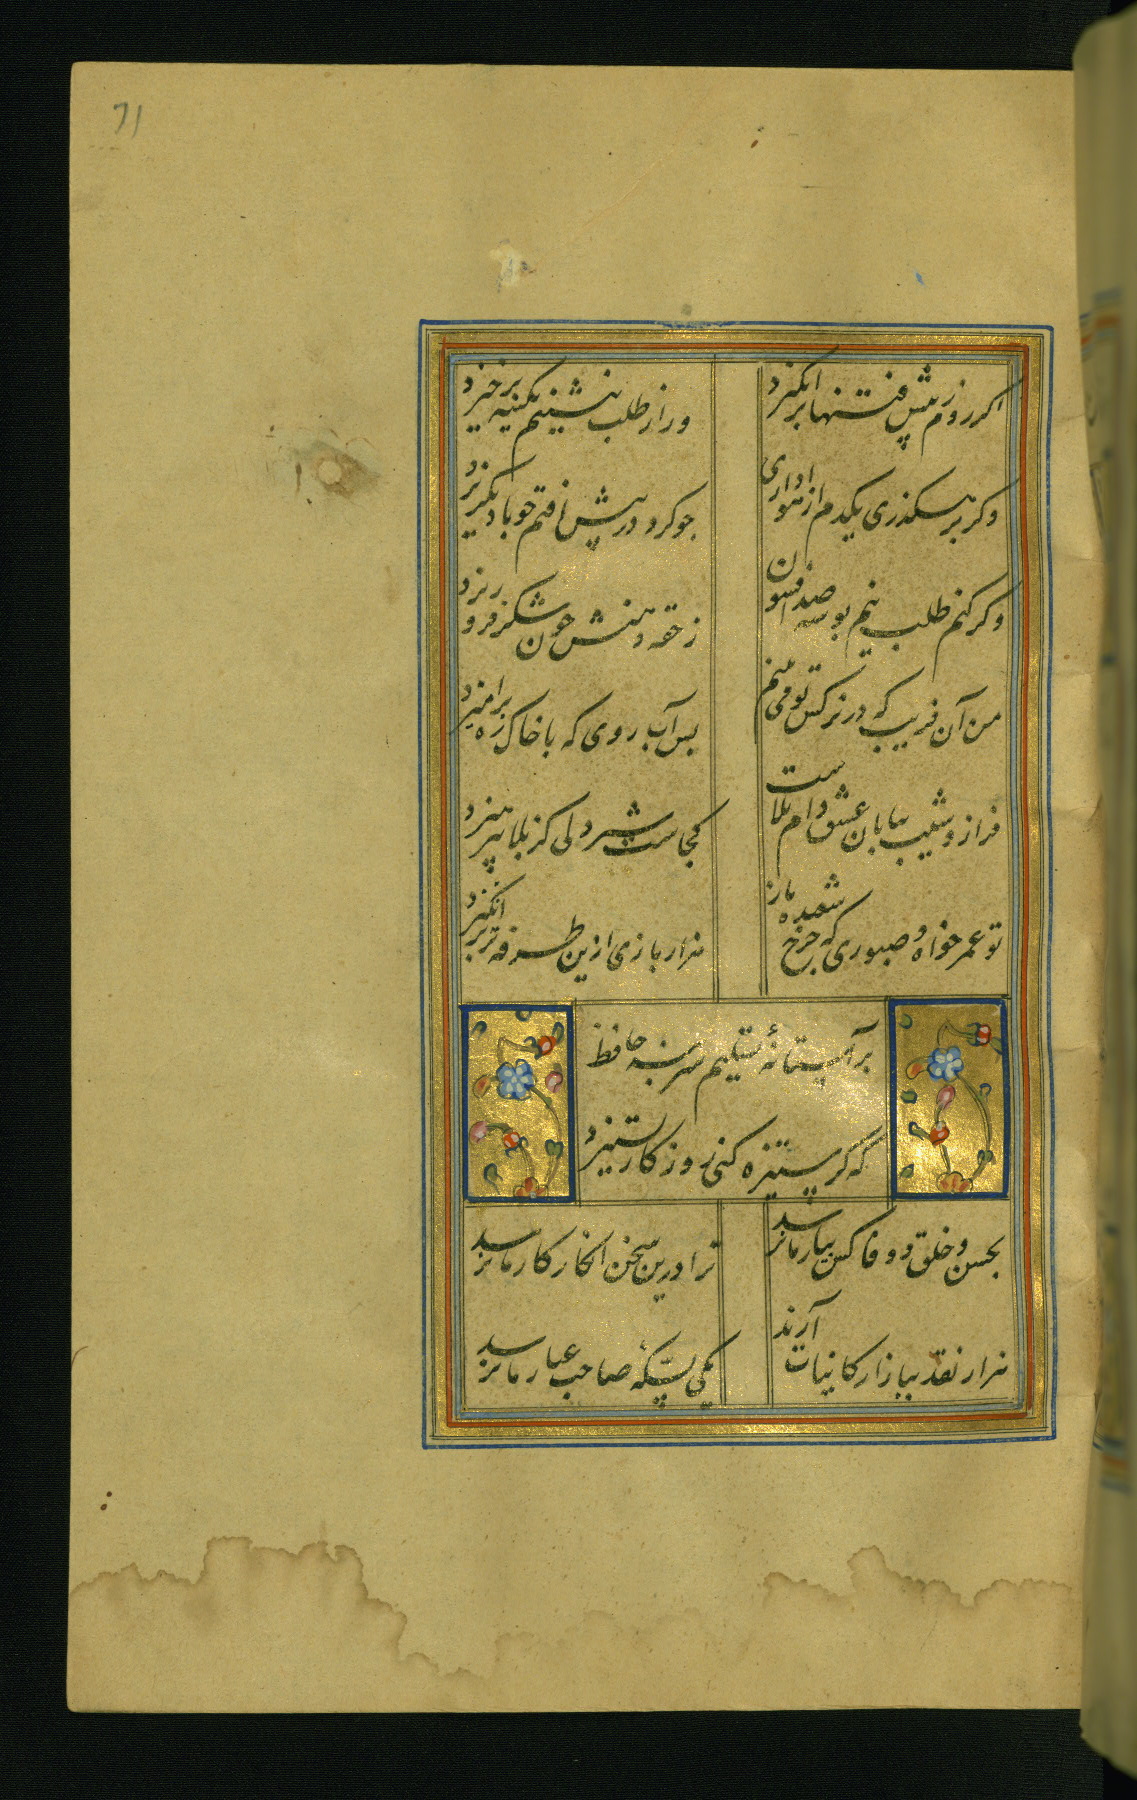 71
اکر روم ز پیش فتنها برانکیزد
ور از طلب بنشینم بکینه برخیزد
وکر برهکذری یکدم از هواداری
چو کرد در پیش افتم چو باد بکریزد
وکر کنم طلب نیم بوسه صد افسون
ز حقه دهنش چون شکر فرو ریزد
من آن فریب که در نرکس تو می بینم
بس آب روی که با خاک ره برامیزد
فراز و شیب بیابان عشق دام بلاست
کجاست شیردلی کز بلا نپرهیزد
تو عمر خواه و صبوری که چرخ شعبده باز
هزار بازی ازین طرفه تر برانکیزد
بر آستانهٔ تسلیم سر بنه حافظ
که کر ستیزه کنی روزکار بستیزد
بحسن و خلق و وفا کس بیار ما نرسد
ترا درین سخن انکار کار ما نرسد
هزار نقد ببازار کاینات آرند
یکی بسکهٔ صاحب عیار ما نرسد